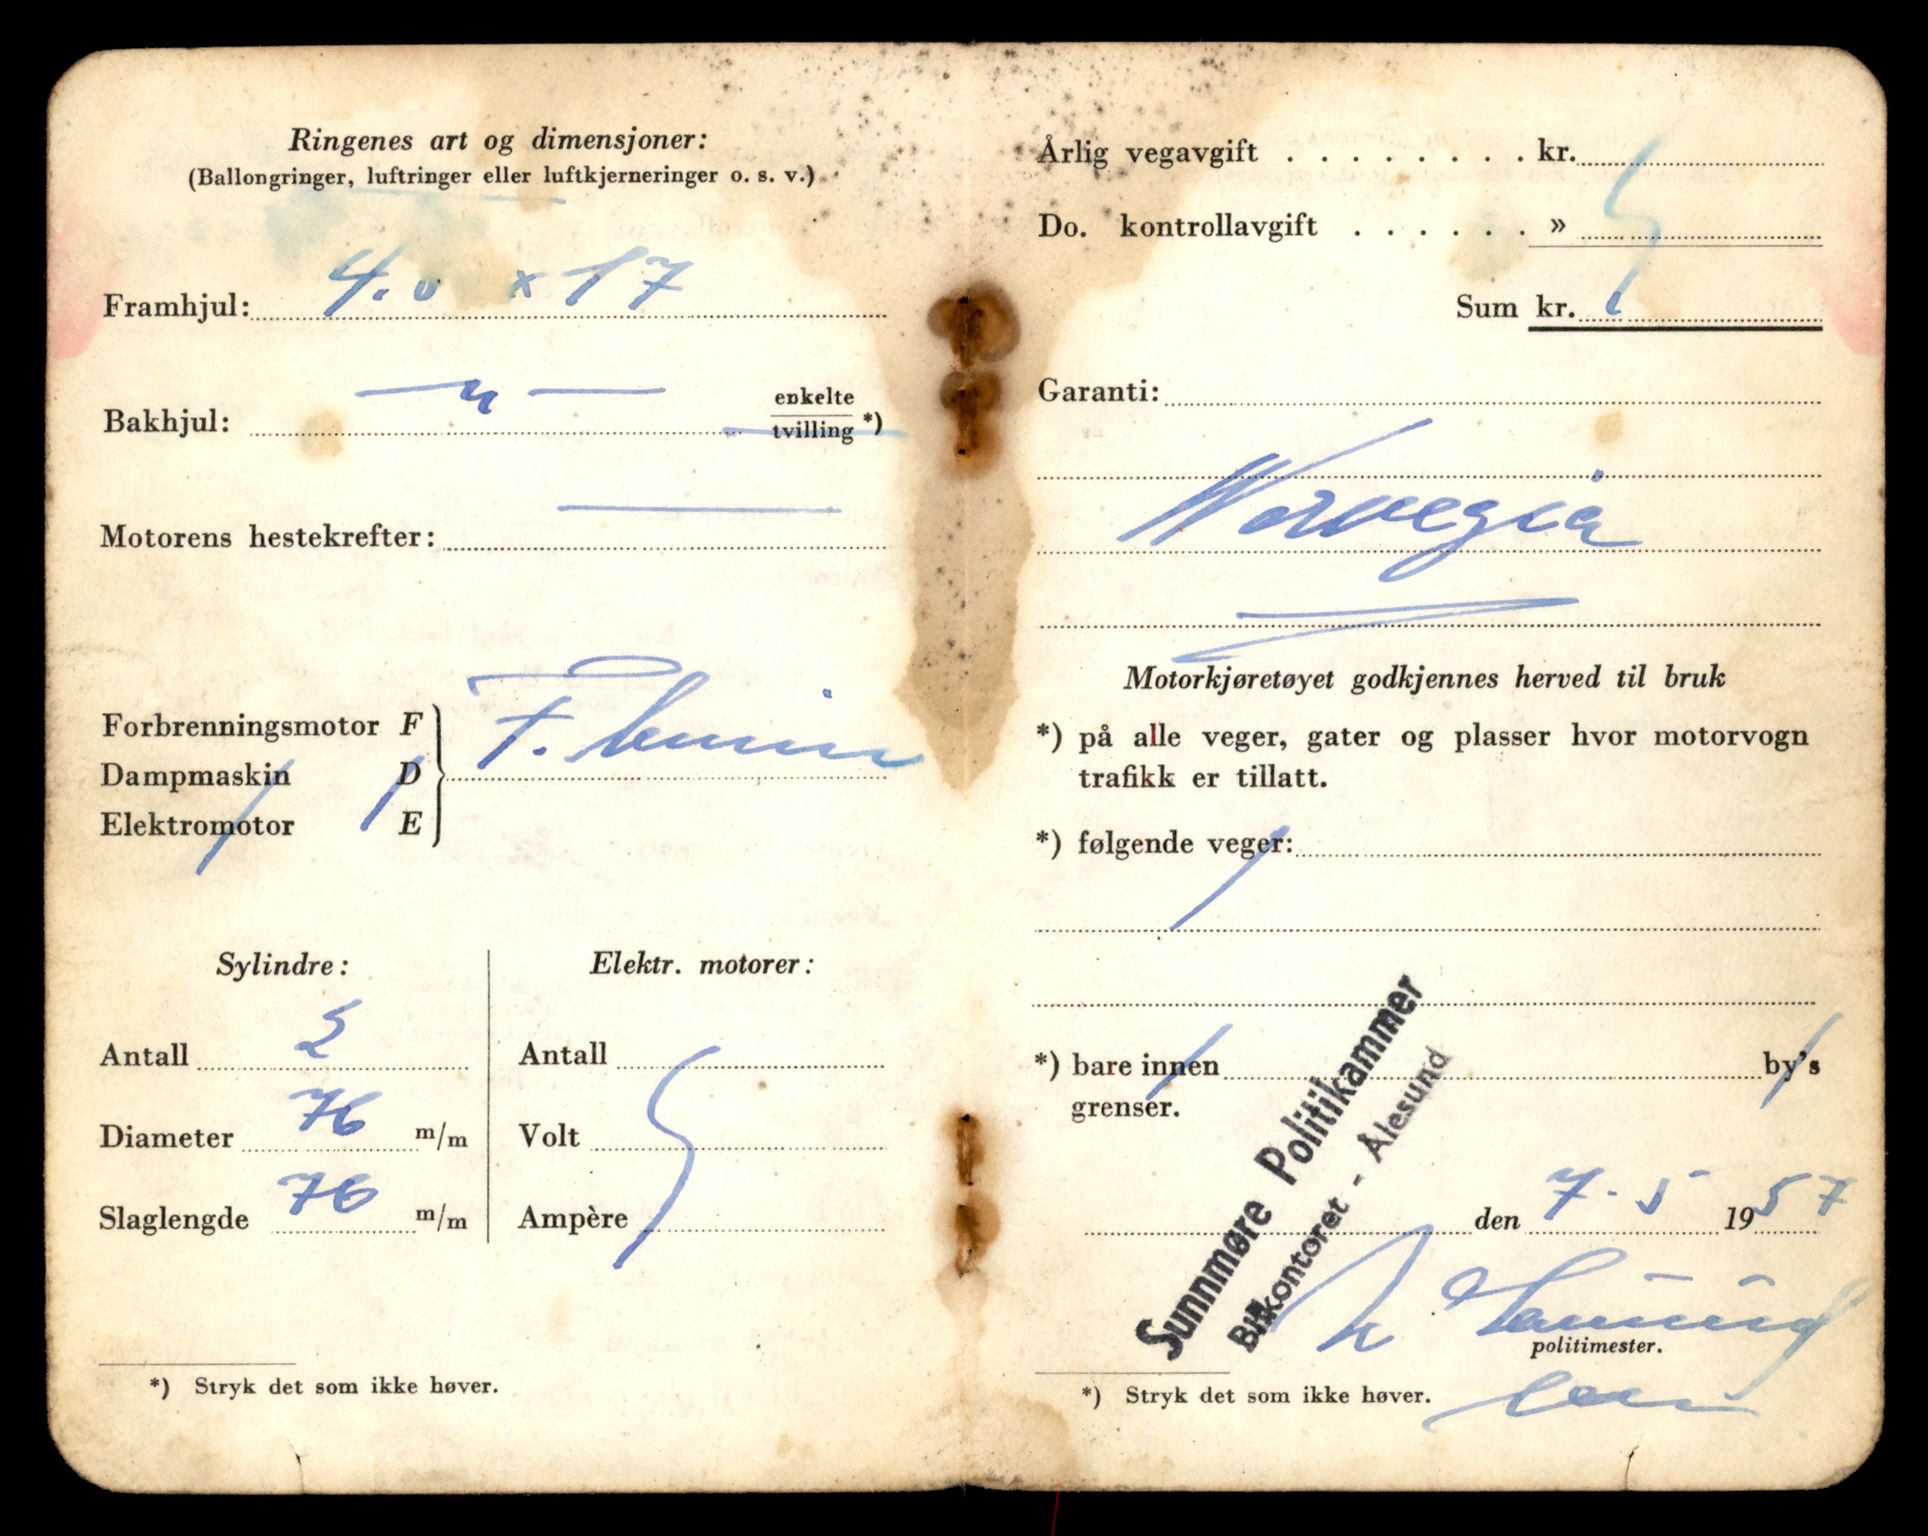 Ringenes art og dimensjoner:
(Ballongringer, luftringer eller luftkjerneringer o. s. v.)
Framhjul: 4.0 x 17
Bakhjul: — " — enkelte
tvilling *)
Motorens hestekrefter: —
Forbrenningsmotor F
Dampmaskin D
Elektromotor E
F. bensin
Sylindre:
Antall 2
Diameter 76 m/m
Slaglengde 76 m/m
Elektr. motorer:
Antall
Volt
Ampère
*) Stryk det som ikke høver.
Årlig vegavgift . . . . . . . . kr.
Do. kontrollavgift . . . . . . »
Sum kr.
Garanti:
Norvegia
Motorkjøretøyet godkjennes herved til bruk
*) på alle veger, gater og plasser hvor motorvogn
trafikk er tillatt.
*) følgende veger:
*) bare innen by's
grenser.
Sunnmøre Politikammer
Bilkontoret - Ålesund
den 7.5 1957
politimester.
*) Stryk det som ikke høver.